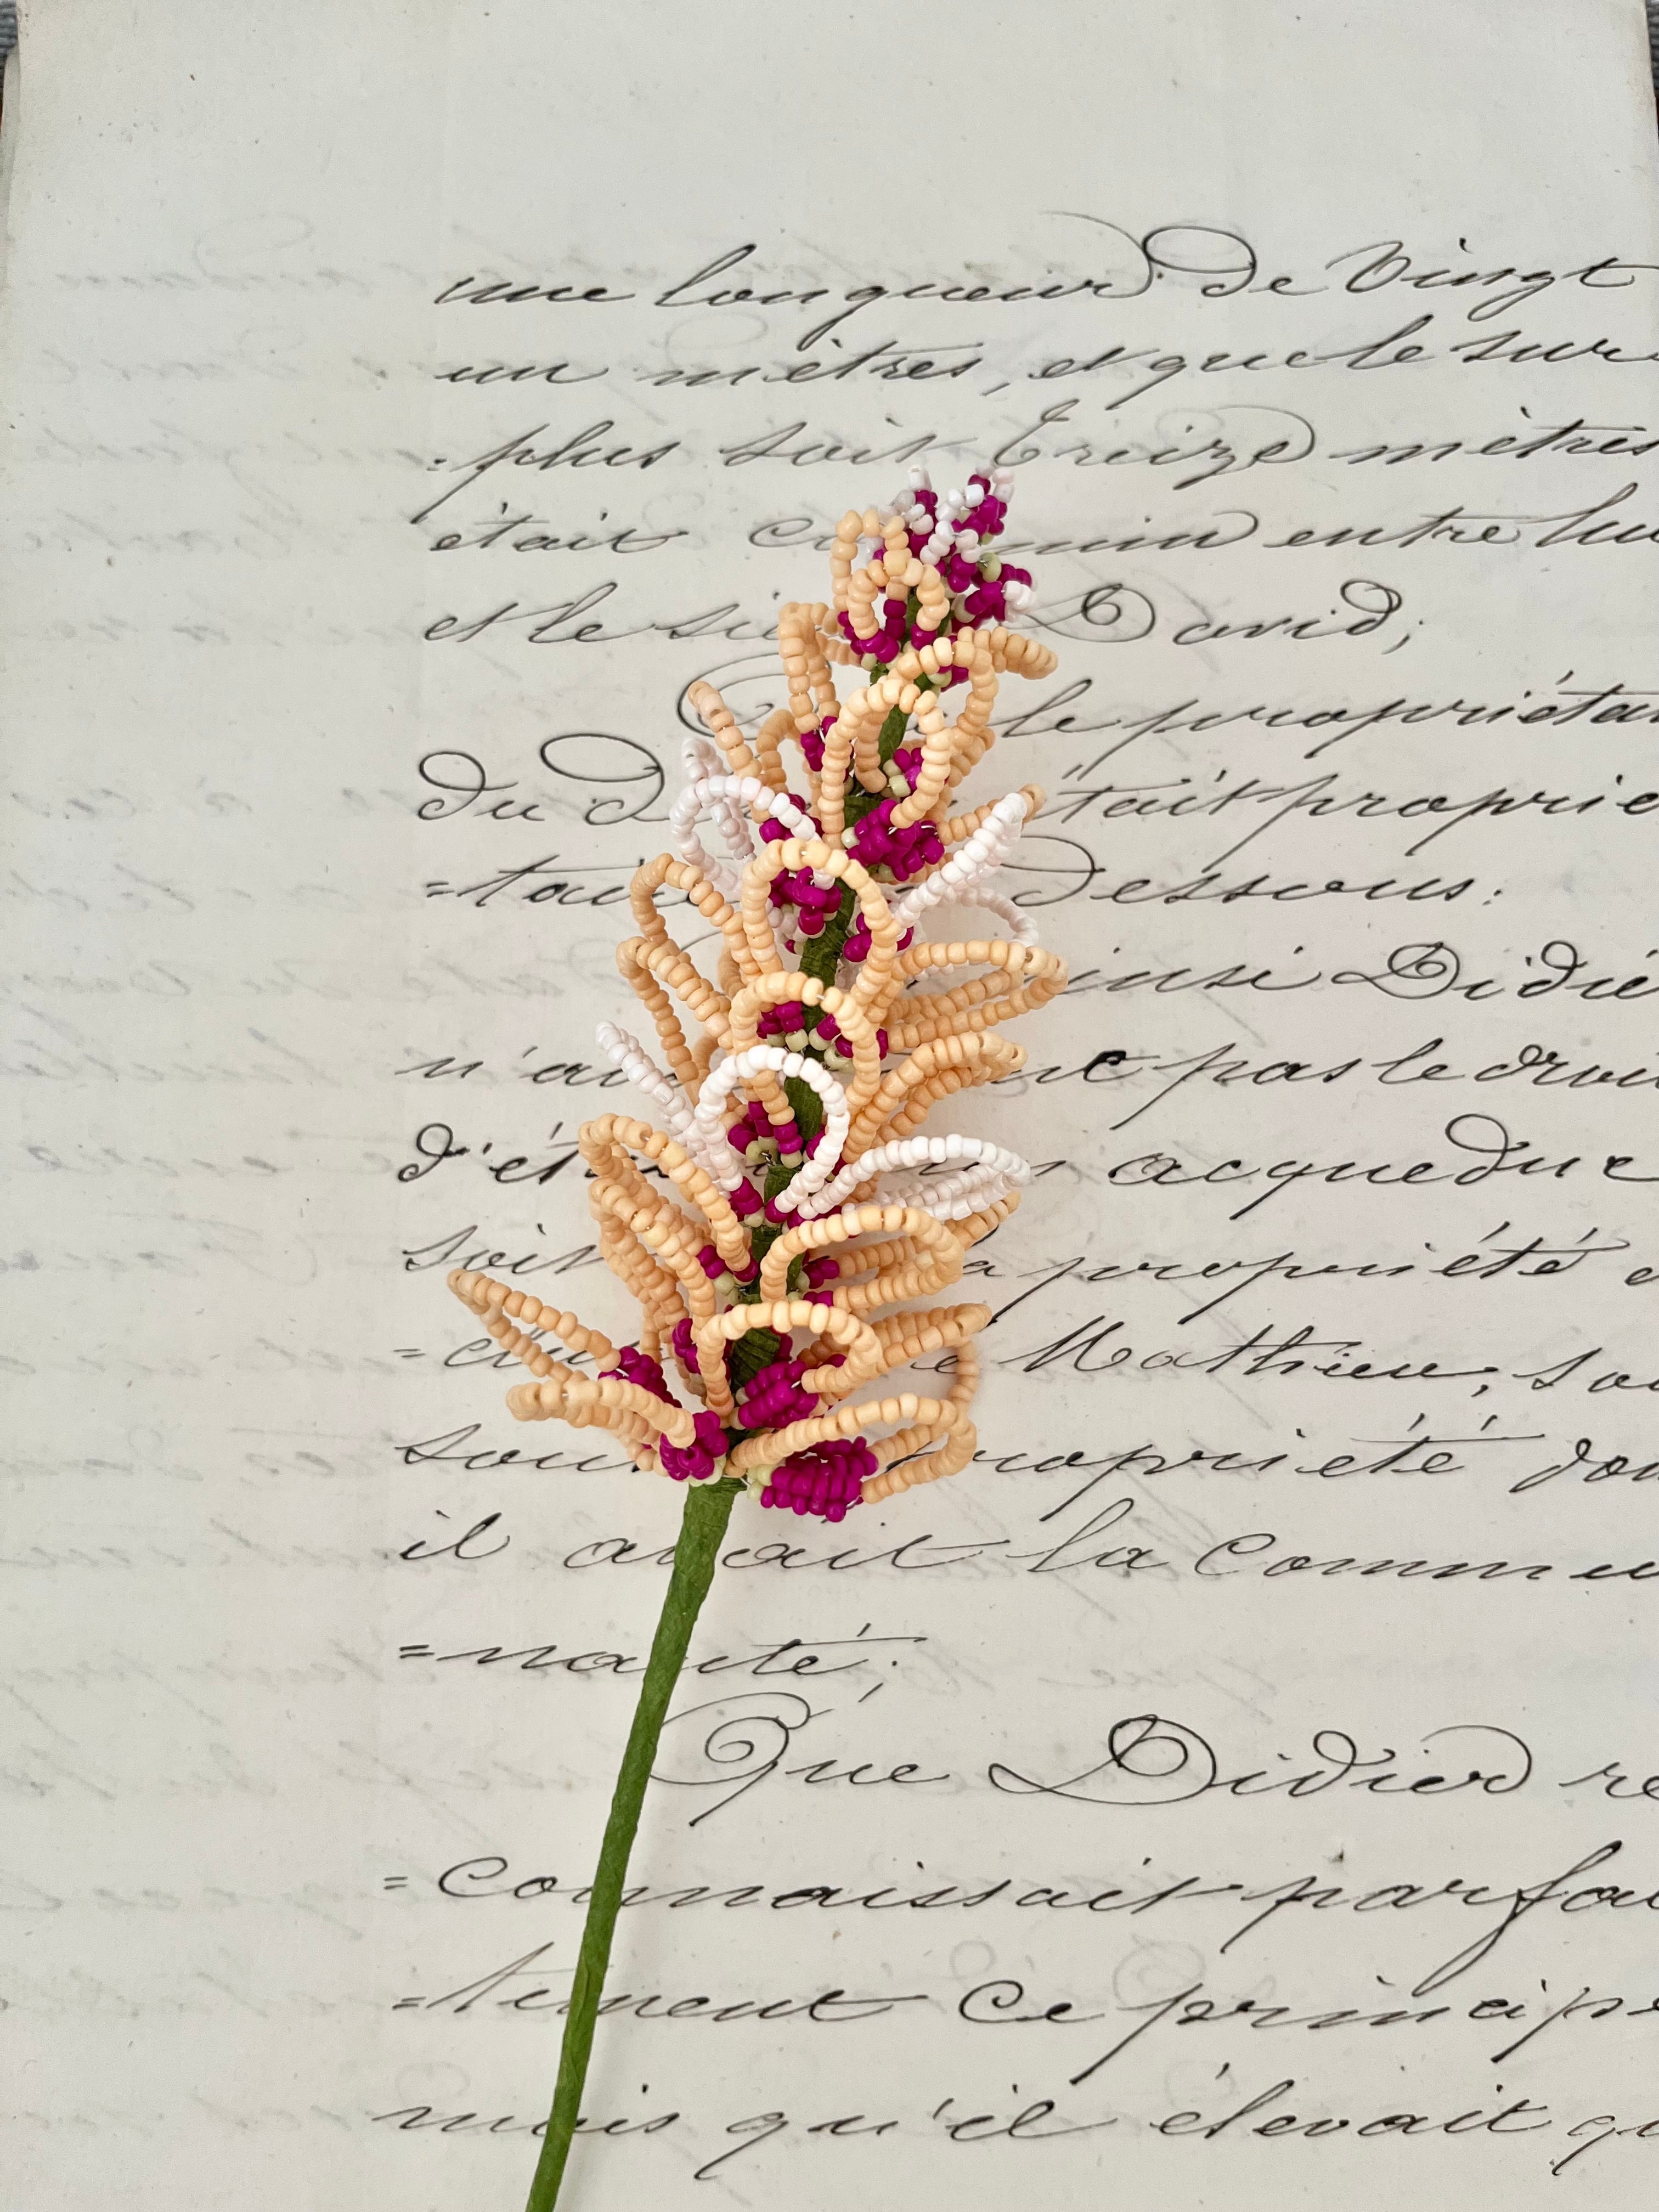 une longueur de Vingt
un mètres, et que le sur
=plus soit Treize mètres
était entre lui
et le David;
le propriétai
du était proprié
=tai Dessous:
insi Didie
n'a pas le droit
d'ét acqueduc
soit propriété
Mathieu, soi
sou ropriété don
il avait la commu
=nauté;
Que Didier re
=connaissait parfai
=tement ce principe
mais qu'il élevait qu